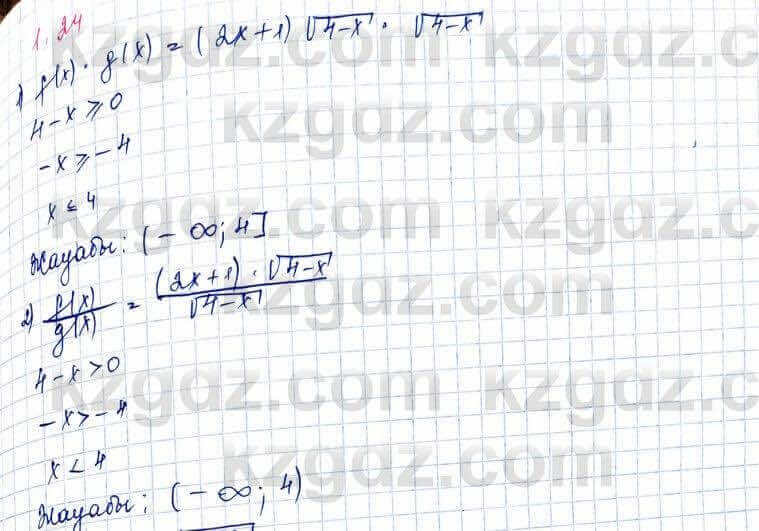 1.24
1) f(x) · g(x) = (2x+1) √4-x · √4-x
4-x ≥ 0
-x ≥ -4
x ≤ 4
Жауабы: (-∞; 4]
2) f(x)/g(x) = (2x+1) · √4-x / √4-x
4-x > 0
-x > -4
x < 4
Жауабы: (-∞; 4)
kzgdz.com kzgdz.com
kzgdz.com
kzgdz.com kzgdz.com
kzgdz.com
kzgdz.com kzgdz.com
kzgdz.com